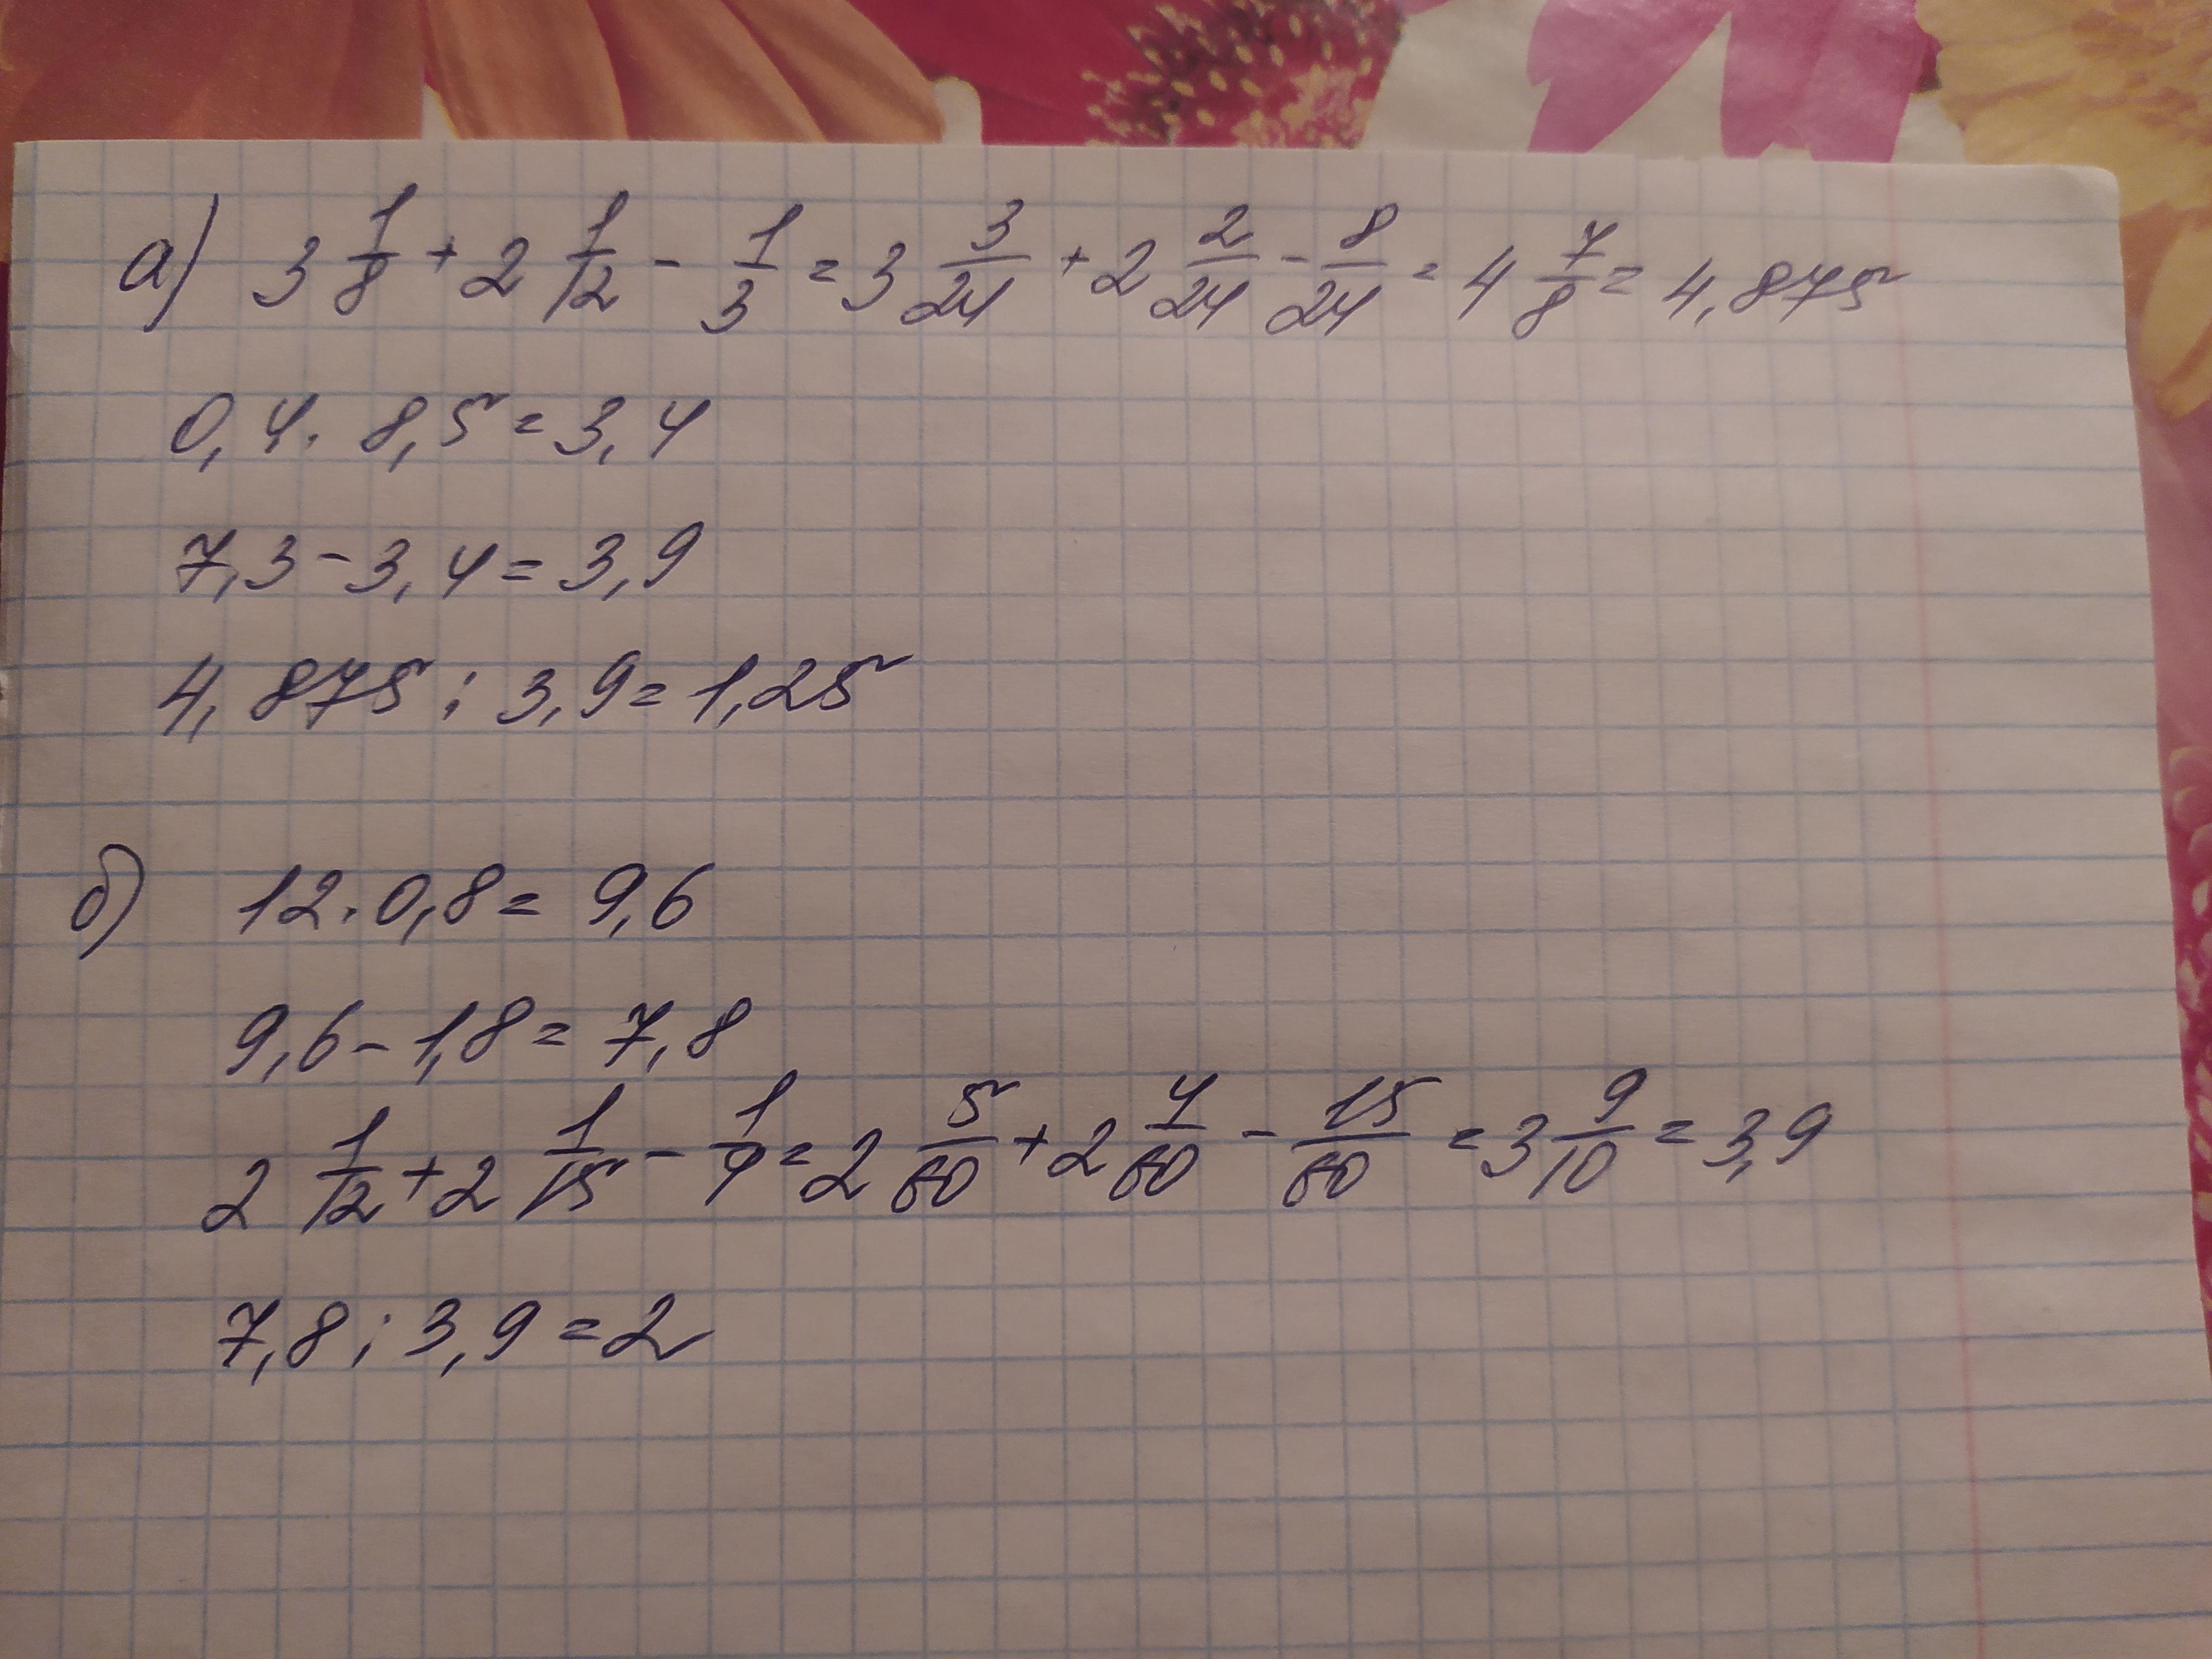 а) 3 1/8 + 2 1/12 - 1/3 = 3 3/24 + 2 2/24 - 8/24 = 4 7/8 = 4,875
0,4 · 8,5 = 3,4
7,3 - 3,4 = 3,9
4,875 : 3,9 = 1,25
б) 12 · 0,8 = 9,6
9,6 - 1,8 = 7,8
2 1/12 + 2 1/15 - 1/4 = 2 5/60 + 2 4/60 - 15/60 = 3 9/10 = 3,9
7,8 : 3,9 = 2